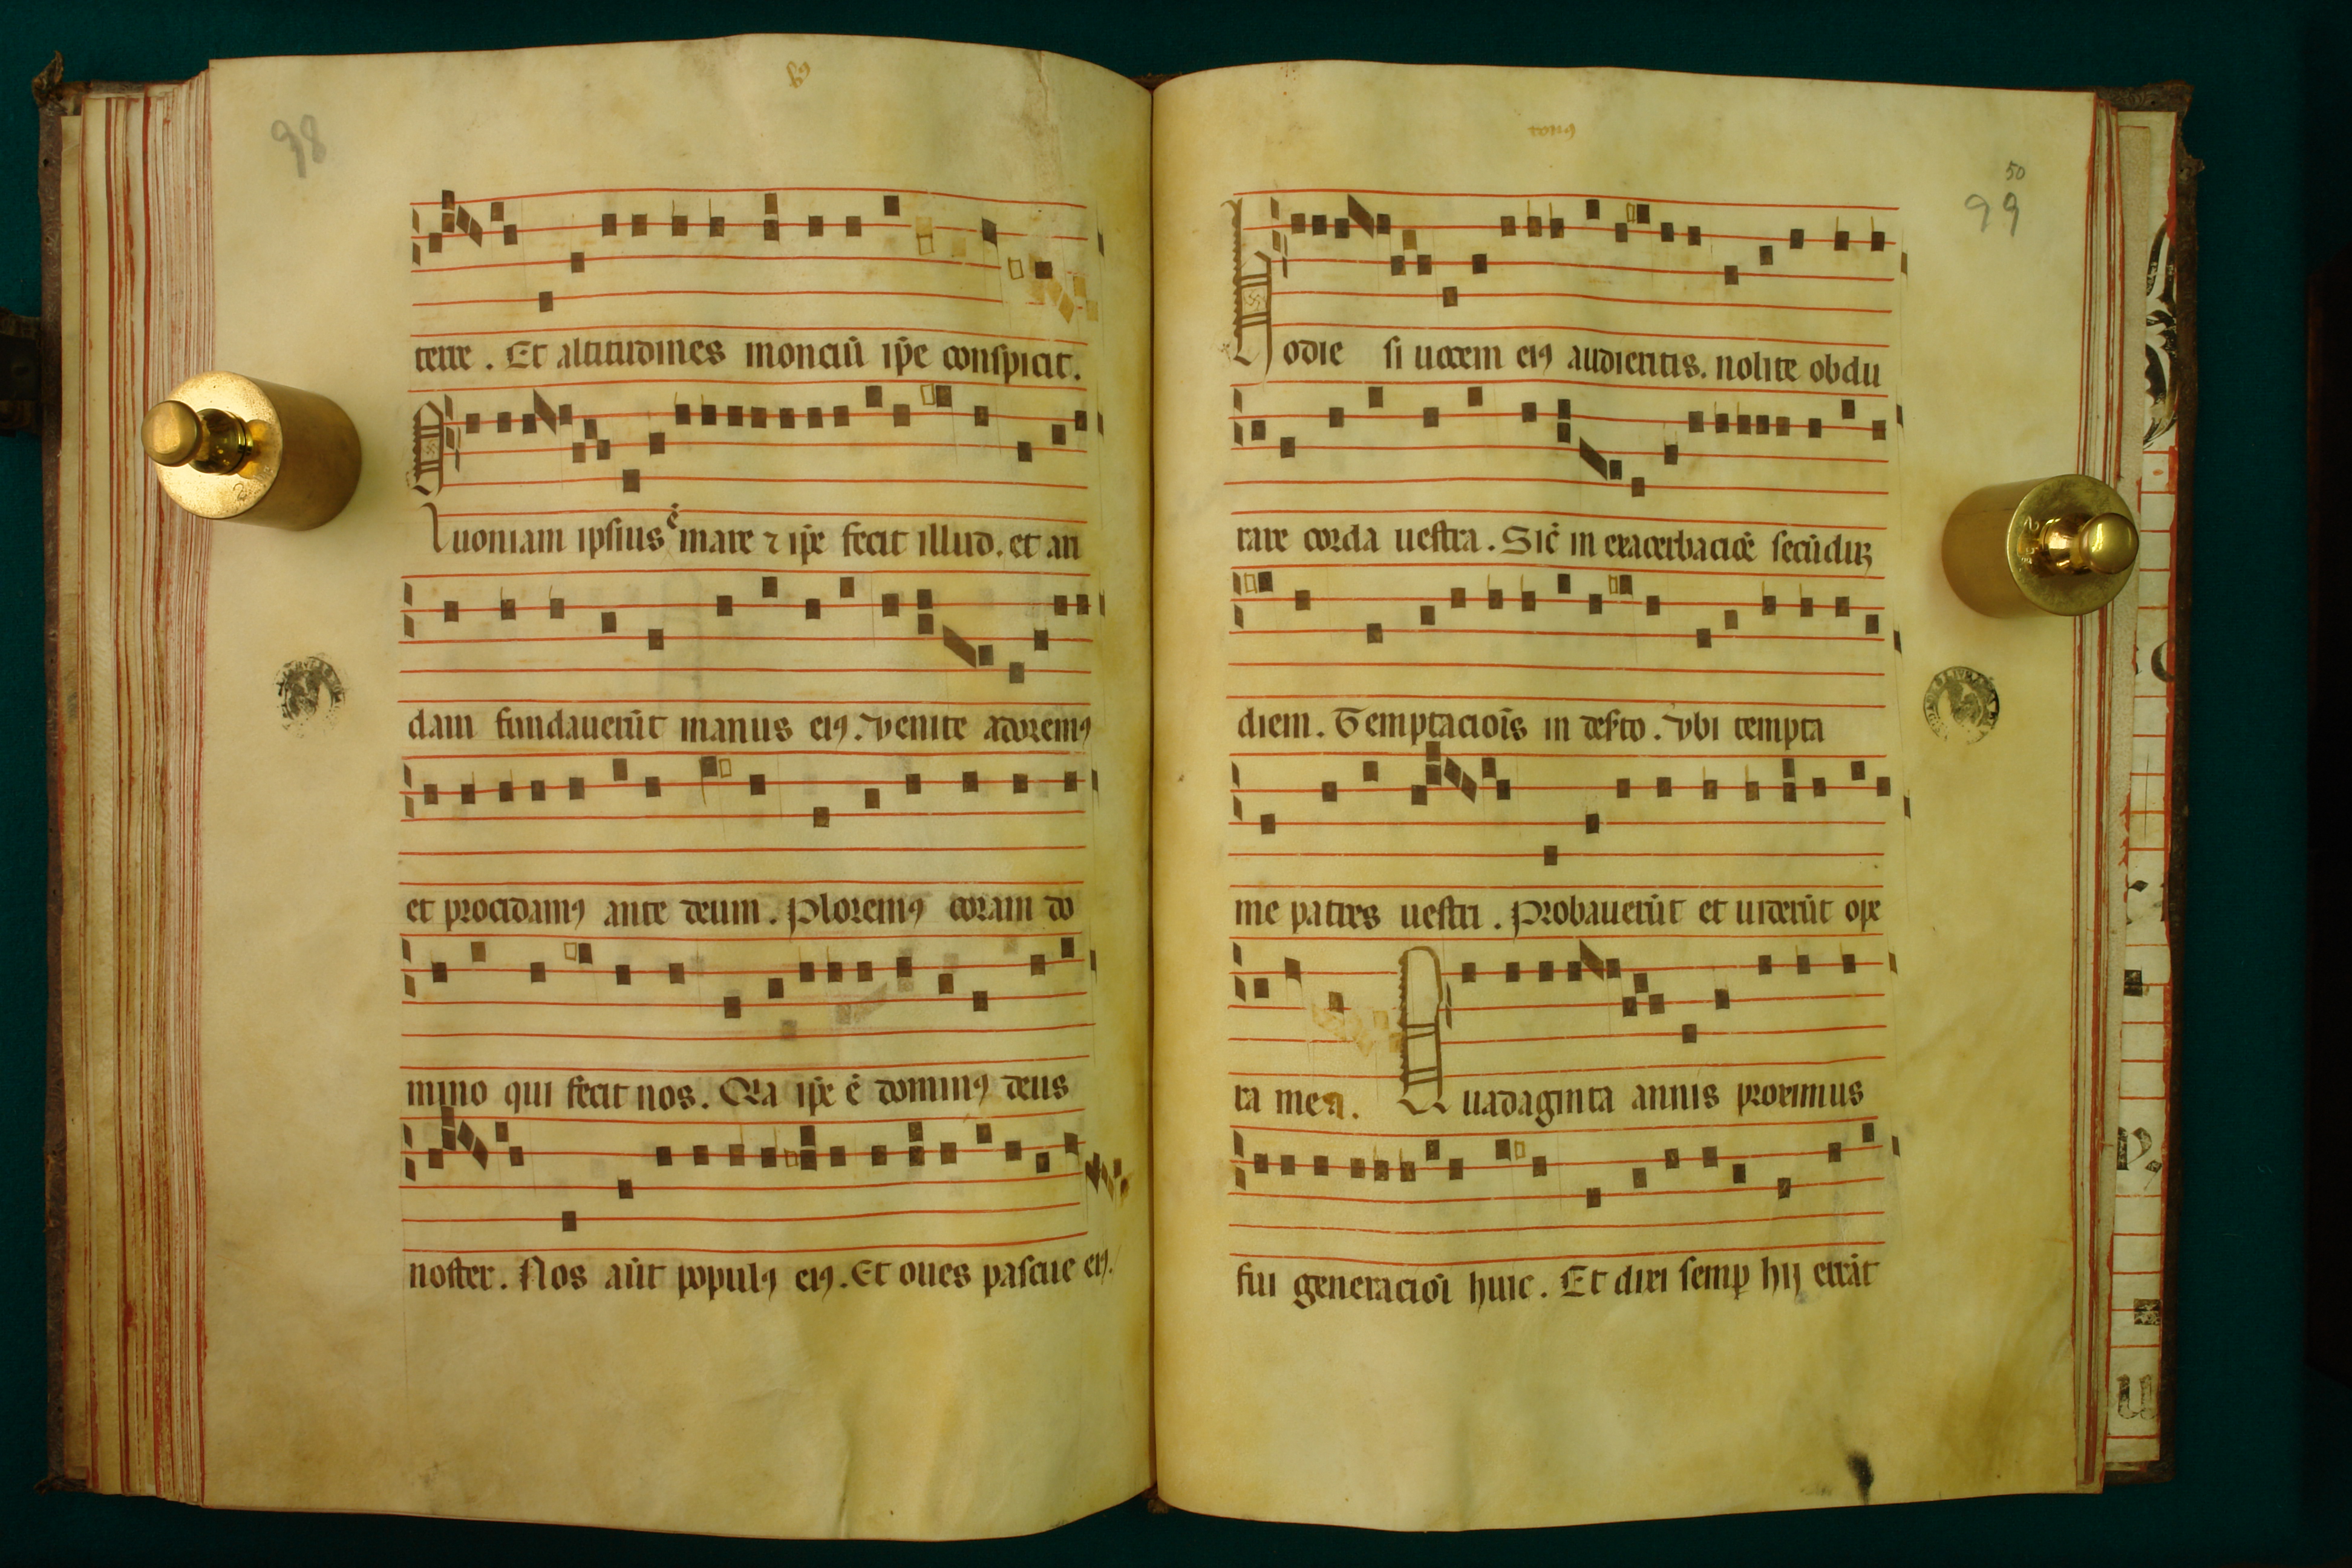 98
terre . Et altitudines monciū ip̄e conspicit.
Quoniam ipsius ē mare ⁊ ip̄e fecit illud. et an
dam fundauerūt manus eiꝯ. Venite adoremꝯ
et procidamꝯ ante deum . Ploremꝯ coram do
mino qui fecit nos. Q̇ia ip̄e ē dominꝯ deus
noster. Nos aūt populꝯ eiꝯ. Et oues pascue eiꝯ.
tonꝯ
50
99
Hodie si uocem eiꝯ audieritis. nolite obdu
rare corda uestra . Sic̄ in exacerbacioē secūduꝫ
diem. Temptaciois̄ in des̄to . Vbi tempta
me patres uestri . Probauerūt et uiderūt ope
ra mea. Quadaginta annis proximus
fui generacioī huic . Et dixi semꝑ hij errāt